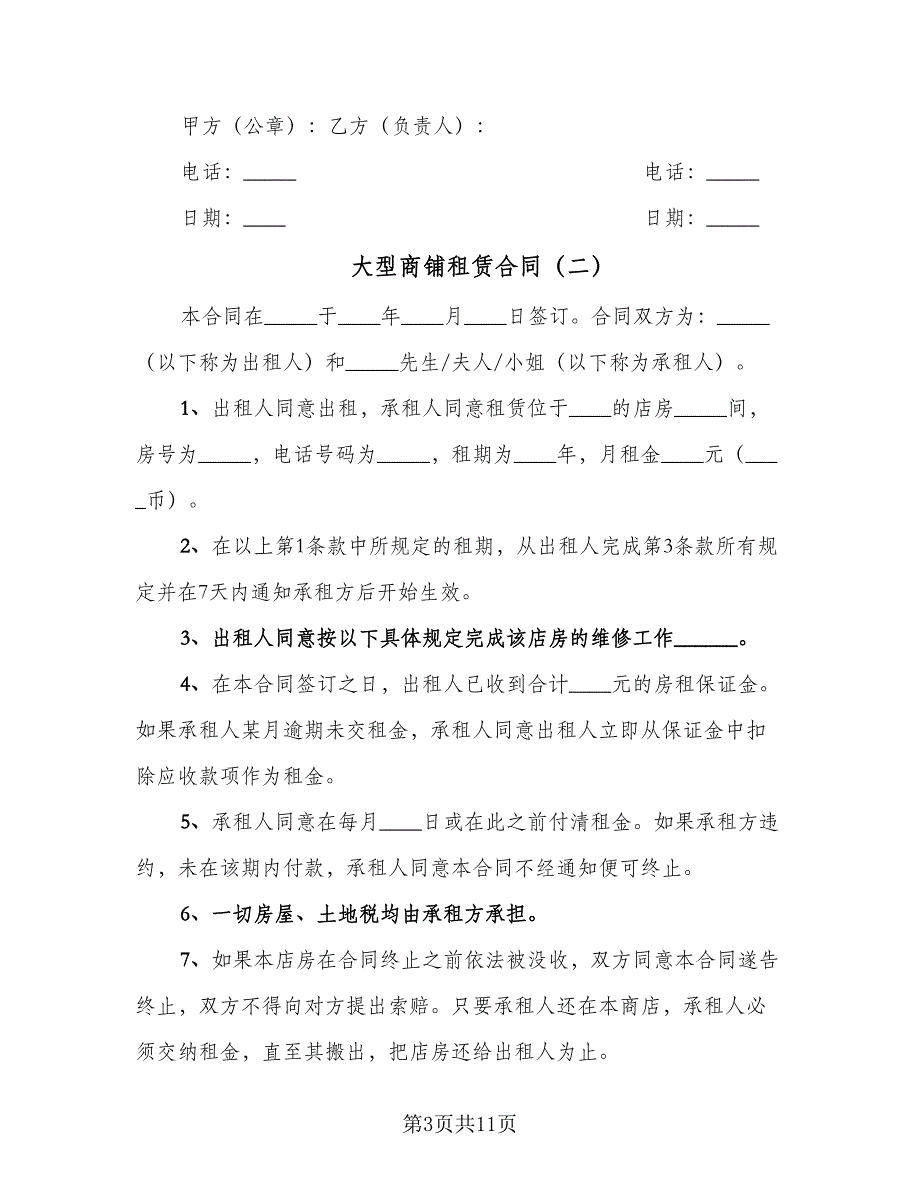 甲方（公章）：乙方（负责人）：
电话：_____ 电话：_____
日期：____ 日期：_____
大型商铺租赁合同（二）
本合同在_____于____年____月____日签订。合同双方为：_____
（以下称为出租人）和_____先生/夫人/小姐（以下称为承租人）。
1、出租人同意出租，承租人同意租赁位于____的店房_____间，
房号为_____，电话号码为_____，租期为____年，月租金____元（___
_币）。
2、在以上第1条款中所规定的租期，从出租人完成第3条款所有规
定并在7天内通知承租方后开始生效。
3、出租人同意按以下具体规定完成该店房的维修工作______。
4、在本合同签订之日，出租人已收到合计____元的房租保证金。
如果承租人某月逾期未交租金，承租人同意出租人立即从保证金中扣
除应收款项作为租金。
5、承租人同意在每月____日或在此之前付清租金。如果承租方违
约，未在该期内付款，承租人同意本合同不经通知便可终止。
6、一切房屋、土地税均由承租方承担。
7、如果本店房在合同终止之前依法被没收，双方同意本合同遂告
终止，双方不得向对方提出索赔。只要承租人还在本商店，承租人必
须交纳租金，直至其搬出，把店房还给出租人为止。
第3页共11页